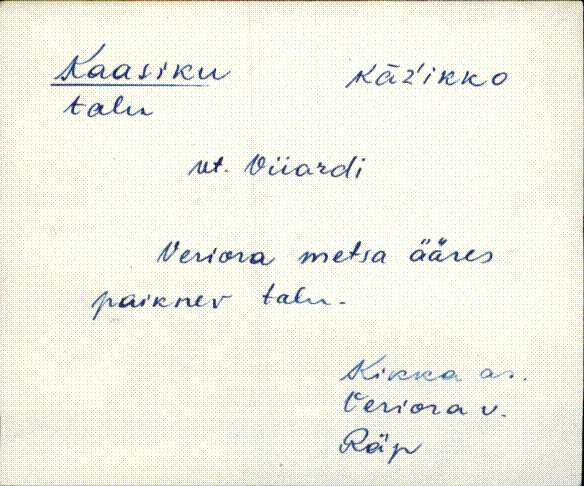 Kaasiku kāź'ikko
talu
vt. Viiardi
Veriora metsa ääres
paiknev talu.
Kikka as.
Veriora v.
Räp